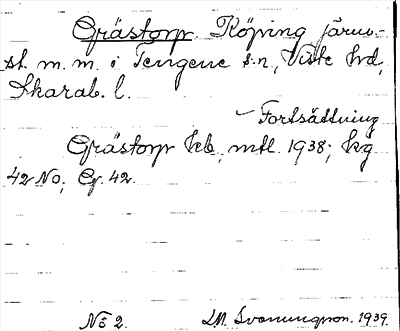 Grästorp. Köping järnv.-
st. m. m. i Tengene s:n, Viste hd,
Skarab. l.
– Fortsättning
Grästorp kb, mtl. 1938; kg
42 No; Cg. 42.
No 2. Svanungson. 1939.